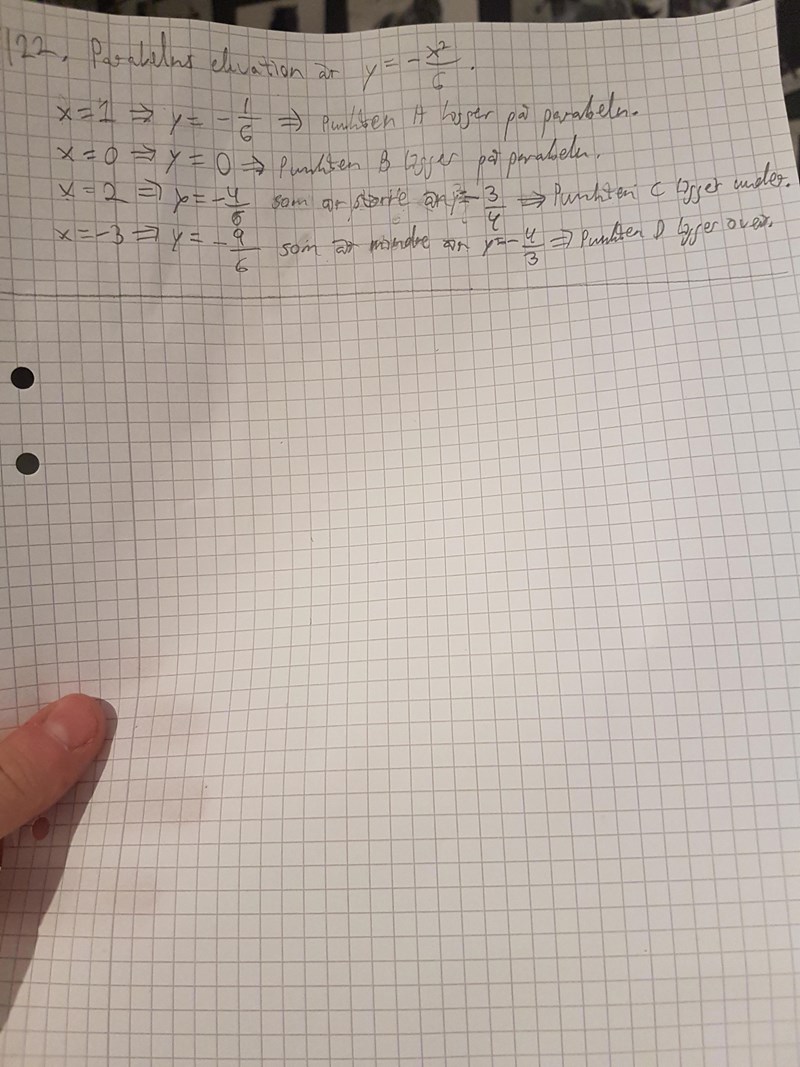 122. Parabelns ekvation är y = -x²/6.
x=1 ⇒ y = -1/6 ⇒ Punkten A ligger på parabeln.
x=0 ⇒ y=0 ⇒ Punkten B ligger på parabeln.
x=2 ⇒ y=-4/6 som är större än y=-3/4 ⇒ Punkten C ligger under.
x=-3 ⇒ y=-9/6 som är mindre än y=-4/3 ⇒ Punkten D ligger över.